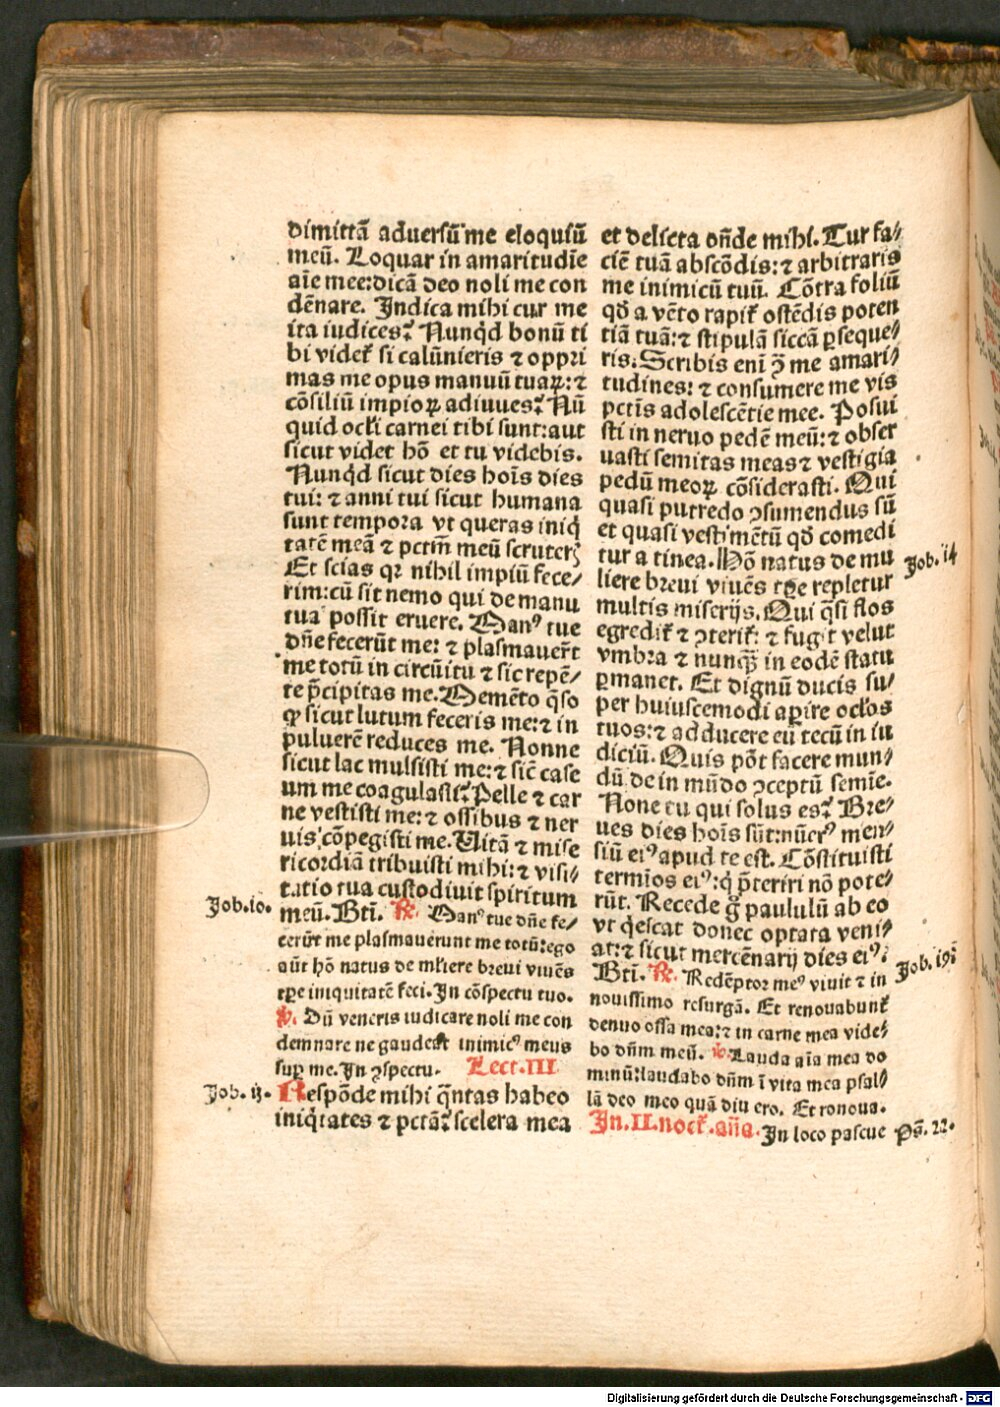 dimittā aduersū me eloquiū
meū. Loquar in amaritudīe
aīe mee: dicā deo noli me con
dēnare. Indica mihi cur me
ita iudices? Nunqd bonū ti
bi videt̄ si calūnieris ⁊ oppri
mas me opus manuū tuaꝝ: ⁊
cōsiliū impioꝝ adiuues? Nū
quid ocl̄i carnei tibi sunt: aut
sicut videt hō et tu videbis.
Nunqd sicut dies hoīs dies
tui: ⁊ anni tui sicut humana
sunt tempora vt queras iniq̄
tatē meā ⁊ pctm̄ meū scruteris
Et scias qꝛ nihil impiū fece⸗
rim: cū sit nemo qui de manu
tua possit eruere. Manꝰ tue
dn̄e fecerūt me: ⁊ plasmauer̄t
me totū in circūitu ⁊ sic repē⸗
te p̄cipitas me. Memēto q̄so
ꝙ sicut lutum feceris me: ⁊ in
puluerē reduces me. Nonne
sicut lac mulsisti me: ⁊ sic̄ case
um me coagulasti? Pelle ⁊ car
ne vestisti me: ⁊ ossibus ⁊ ner
uis cōpegisti me. Uitā ⁊ mise
ricordiā tribuisti mihi: ⁊ visi⸗
tatio tua custodiuit spiritum
Job. 10.
meū. Btī. ℟. Manꝰ tue dn̄e fe⸗
cerūt me plasmauerunt me totū: ego
aūt hō natus de ml̄iere breui viuēs
tp̄e iniquitatē feci. In cōspectu tuo.
℣. Dū veneris iudicare noli me con
demnare ne gaudeat inimicꝰ meus
suꝑ me. In ꝯspectu. Lect. III
Job. 13.
Respōde mihi q̄ntas habeo
iniq̄tates ⁊ pctā? scelera mea
et delicta on̄de mihi. Cur fa⸗
ciē tuā abscōdis: ⁊ arbitraris
me inimicū tuū. Cōtra foliū
qd̄ a vēto rapit̄ ostēdis poten
tiā tuā: ⁊ stipulā siccā ꝑseque⸗
ris. Scribis enī ꝯ̄ me amari⸗
tudines: ⁊ consumere me vis
pctīs adolescētie mee. Posui
sti in neruo pedē meū: ⁊ obser
uasti semitas meas ⁊ vestigia
pedū meoꝝ cōsiderasti. Qui
quasi putredo ꝯsumendus sū
et quasi vestimētū qd̄ comedi
tur a tinea. Hō natus de mu
Job. 14
liere breui viuēs tp̄e repletur
multis miserijs. Qui q̄si flos
egredit̄ ⁊ ꝯterit̄: ⁊ fugit velut
vmbra ⁊ nunqꝫ̄ in eodē statu
ꝑmanet. Et dignū ducis su⸗
per huiuscemodi aꝑire ocl̄os
tuos: ⁊ adducere eū tecū in iu
diciū. Quis pōt facere mun⸗
dū de in mūdo ꝯceptū semīe.
None tu qui solus es? Bre⸗
ues dies hoīs sūt: nūerꝰ men⸗
siū eiꝰ apud te est. Cōstituisti
termīos eiꝰ: q̄ p̄teriri nō pote⸗
rūt. Recede g̊ paululū ab eo
vt q̄escat donec optata veni⸗
at: ⁊ sicut mercēnarij dies eiꝰ.
Job. 19.
Btī. ℟. Redēptor meꝰ viuit ⁊ in
nouissimo resurgā. Et renouabunt̄
denuo ossa mea: ⁊ in carne mea vide⸗
bo dn̄m meū. ℣. Lauda aīa mea do
minū: laudabo dn̄m ī vita mea psal⸗
lā deo meo quā diu ero. Et ronoua.
In. II. noct̄. an̄a. In loco pascue
Ps̄. 22.
Digitalisierung gefördert durch die Deutsche Forschungsgemeinschaft - DFG